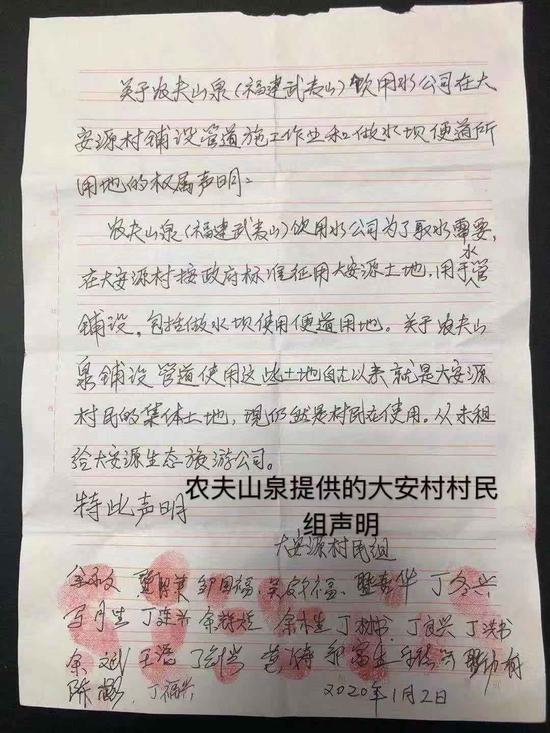 关于农夫山泉(福建武夷山)饮用水公司在大
安源村铺设管道施工作业和做水坝便道所
用地的权属声明。
农夫山泉(福建武夷山)饮用水公司为了取水需要,
在大安源村按政府标准征用大安源土地,用于水管
铺设。包括做水坝使用便道用地。关于农夫山
泉铺设管道使用这些土地自古以来就是大安源
村民的集体土地,现仍然是村民在使用。从未租
给大安源生态旅游公司。
特此声明
农夫山泉提供的大安村村民
组声明
大安源村民组
邹国福 丁冬兴
丁连兴 余木生 丁良兴 丁洪书
余斌 王浩
陈彪 丁福兴
2020年1月2日